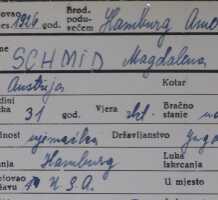 ovao 1926 Brod. podu-
sečem Hamburg Ame
SCHMID Magdalena
Austrija Kotar
dini
ka 31 god. Vjera rkt. Bračno
stanje
nost njemačka Državljanstvo Jugo
anja Hamburg Luka
iskrcanja
otovao
žavu U.S.A. U mjesto